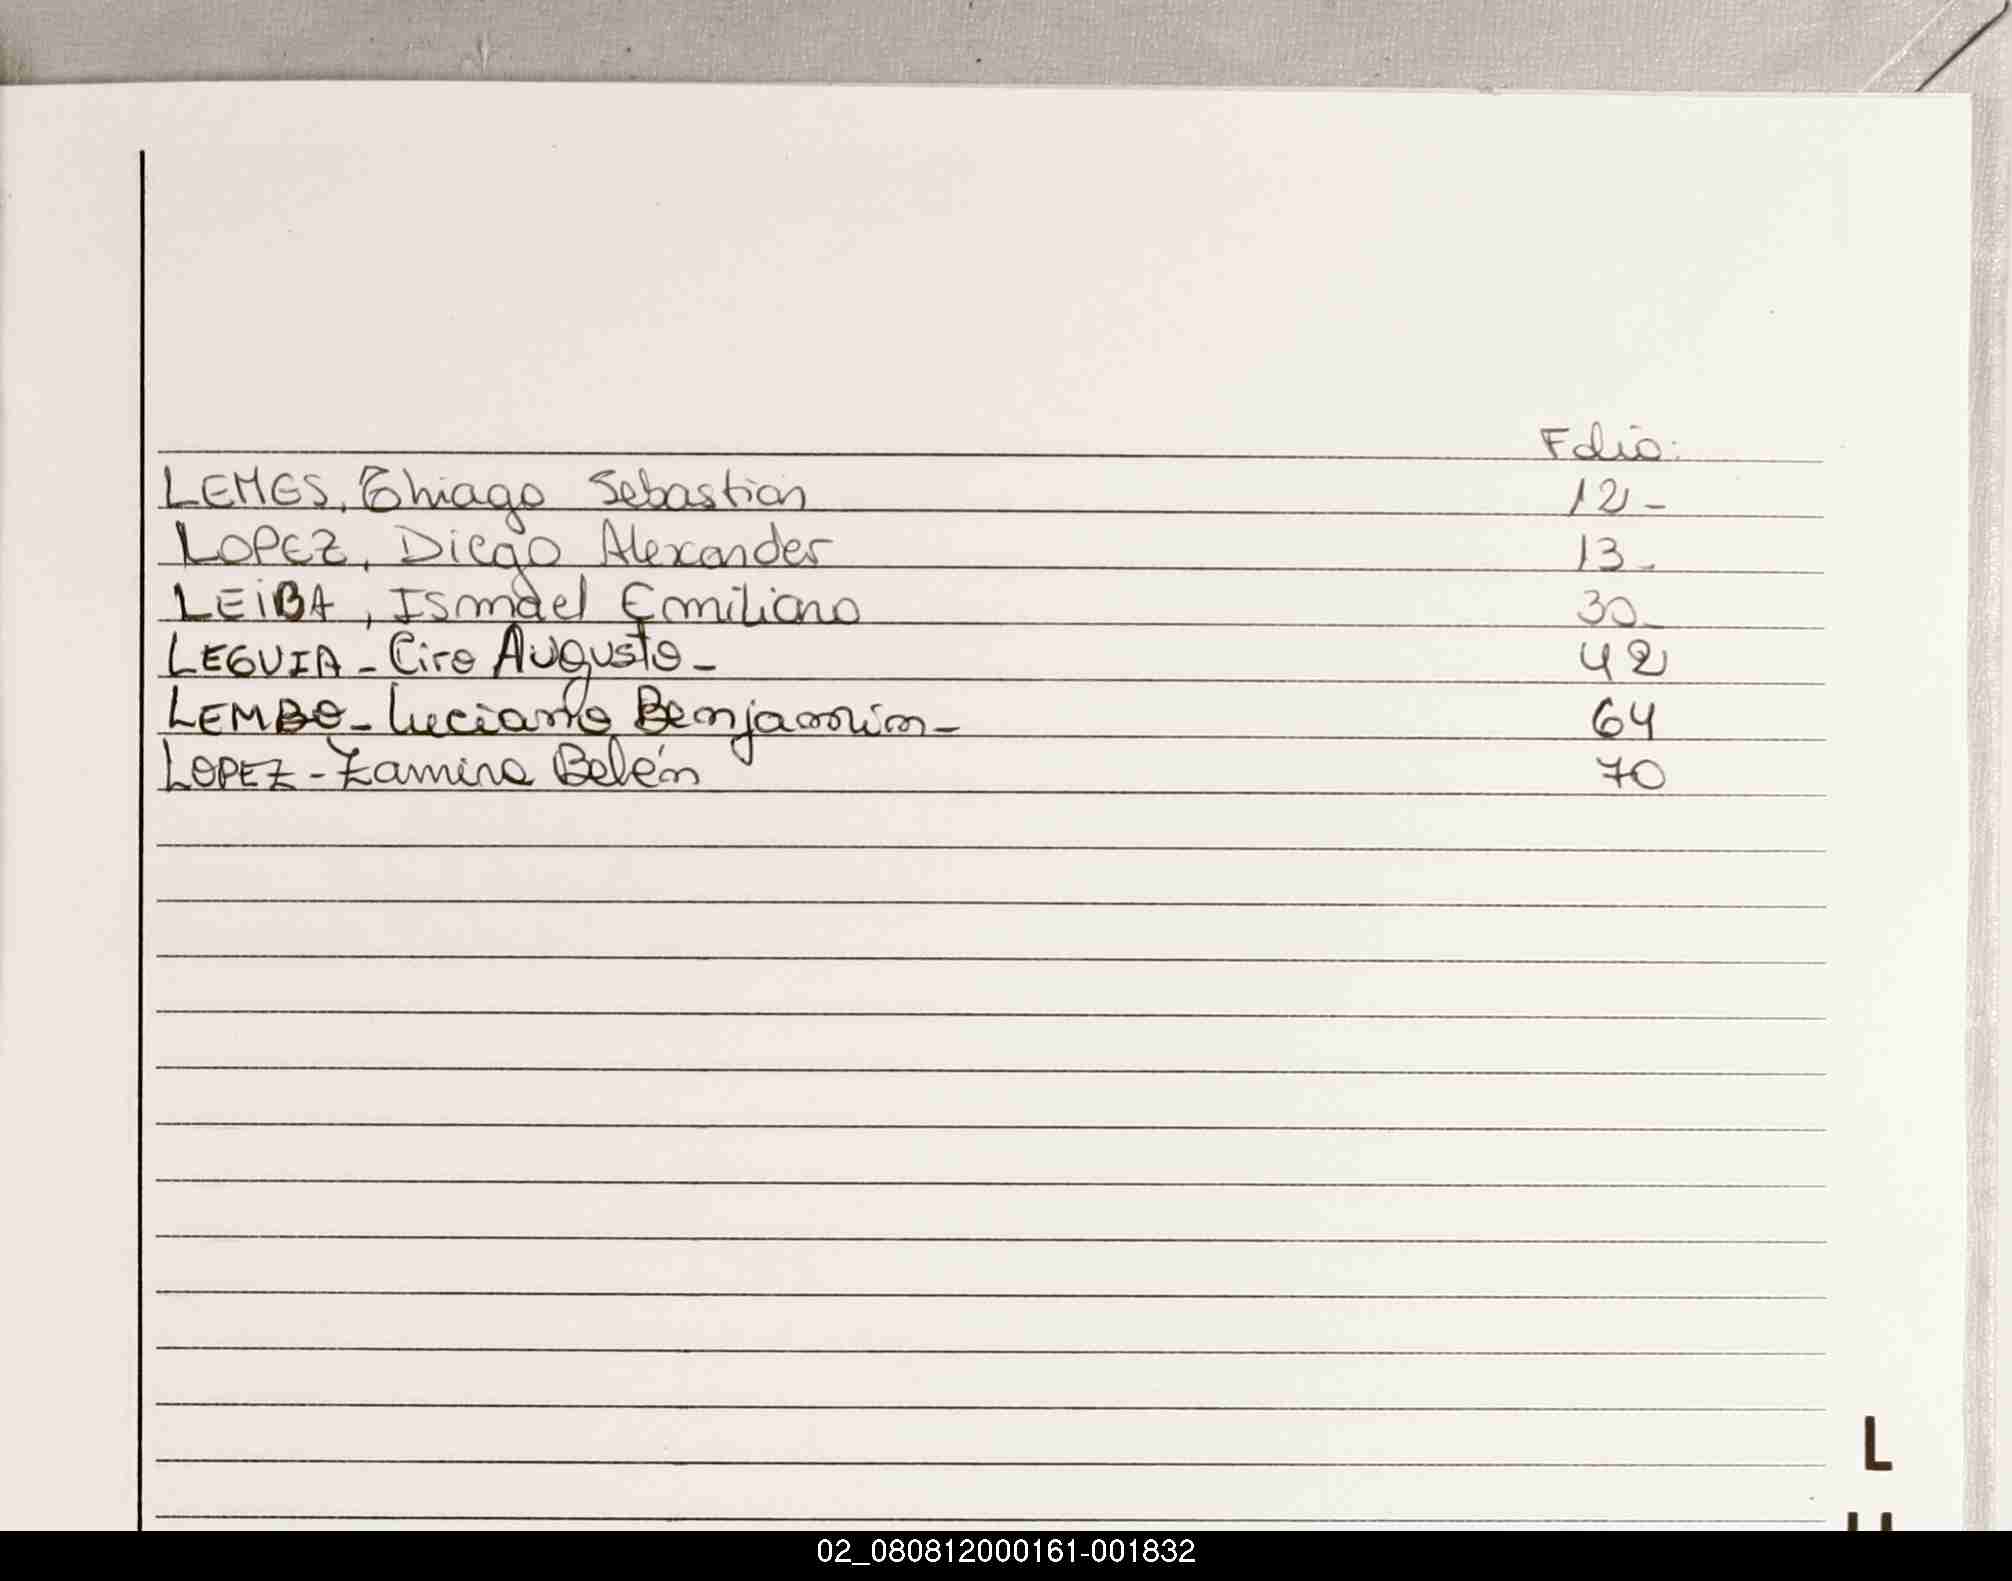 Folio:
LEMES, Thiago Sebastian 12-
LOPEZ, Diego Alexander 13-
LEIBA, Ismael Emiliano 30-
LEGUIA - Ciro Augusto - 42
LEMBO - Luciano Benjamin - 64
LOPEZ - Zamira Belén 70
L
02_080812000161-001832